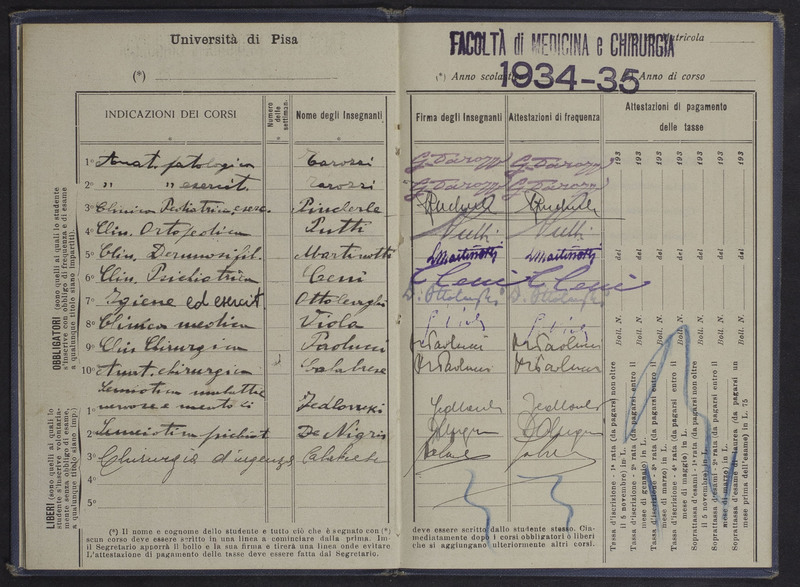 Università di Pisa
(*)
INDICAZIONI DEI CORSI
Numero delle settiman.
Nome degli Insegnanti
OBBLIGATORI (sono quelli ai quali lo studente s'inscrive con obbligo di frequenza e di esame a qualunque titolo siano impartiti).
LIBERI (sono quelli ai quali lo studente s'inscrive volontariamente senza obbligo di esame, a qualunque titolo siano imp.)
1° Anat. patologica Tarozzi
2° " " esercit. Tarozzi
3° Clinica Pediatrica, eserc.
4° Clin. Ortopedica Putti
5° Clin. Dermosifil. Martinotti
6° Clin. Psichiatrica Ceni
7° Igiene ed esercit Ottolenghi
8° Clinica medica Viola
9° Clin Chirurgica Paolucci
10° Anat. chirurgica Calabrese
Semeiotica malattie
1° nervose e mentali Jedlowski
2° Semeiotica psichiat De Nigris
3° Chirurgia d'urgenza Calabrese
4°
5°
(*) Il nome e cognome dello studente e tutto ciò che è segnato con (*)
scun corso deve essere scritto in una linea a cominciare dalla prima. Im-
il Segretario apporrà il bollo e la sua firma e tirerà una linea onde evitare
L'attestazione di pagamento delle tasse deve essere fatta dal Segretario.
FACOLTÀ di MEDICINA e CHIRURGIA
Matricola
(*) Anno scolast
1934-35
Anno di corso
Firma degli Insegnanti
Attestazioni di frequenza
Attestazioni di pagamento
delle tasse
G. Tarozzi G. Tarozzi
G. Tarozzi G. Tarozzi
Putti Putti
Martinotti Martinotti
C Ceni C Ceni
D. Ottolenghi D. Ottolenghi
R Paolucci R Paolucci
R Paolucci R Paolucci
Tassa d'iscrizione - 1ª rata (da pagarsi non oltre il 5 novembre) in L. Boll. N. del 193
Tassa d'iscrizione - 2ª rata (da pagarsi entro il mese di gennaio) in L. Boll. N. del 193
Tassa d'iscrizione - 4ª rata (da pagarsi entro il mese di marzo) in L. Boll. N. del 193
Tassa d'iscrizione - 4ª rata (da pagarsi entro il mese di maggio) in L. Boll. N. del 193
Soprattassa d'esami - 1ª rata (da pagarsi non oltre il 5 novembre) in L. Boll. N. del 193
Soprattassa d'esami - 2ª rata (da pagarsi entro il mese di marzo) in L. Boll. N. del 193
Soprattassa d'esame di laurea (da pagarsi un mese prima dell'esame) in L. 75 Boll. N. del 193
deve essere scritto dallo studente stesso. Cia-
mediatamente dopo i corsi obbligatori o liberi
che si aggiungano ulteriormente altri corsi.